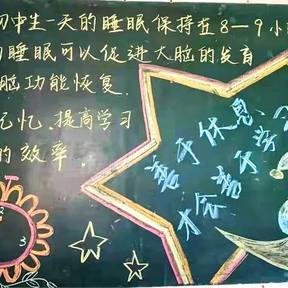 初中生一天的睡眠保持在8—9小
的睡眠可以促进大脑的发育
脑功能恢复.
记忆、提高学习
的效率.
善于休息、
才会善于学